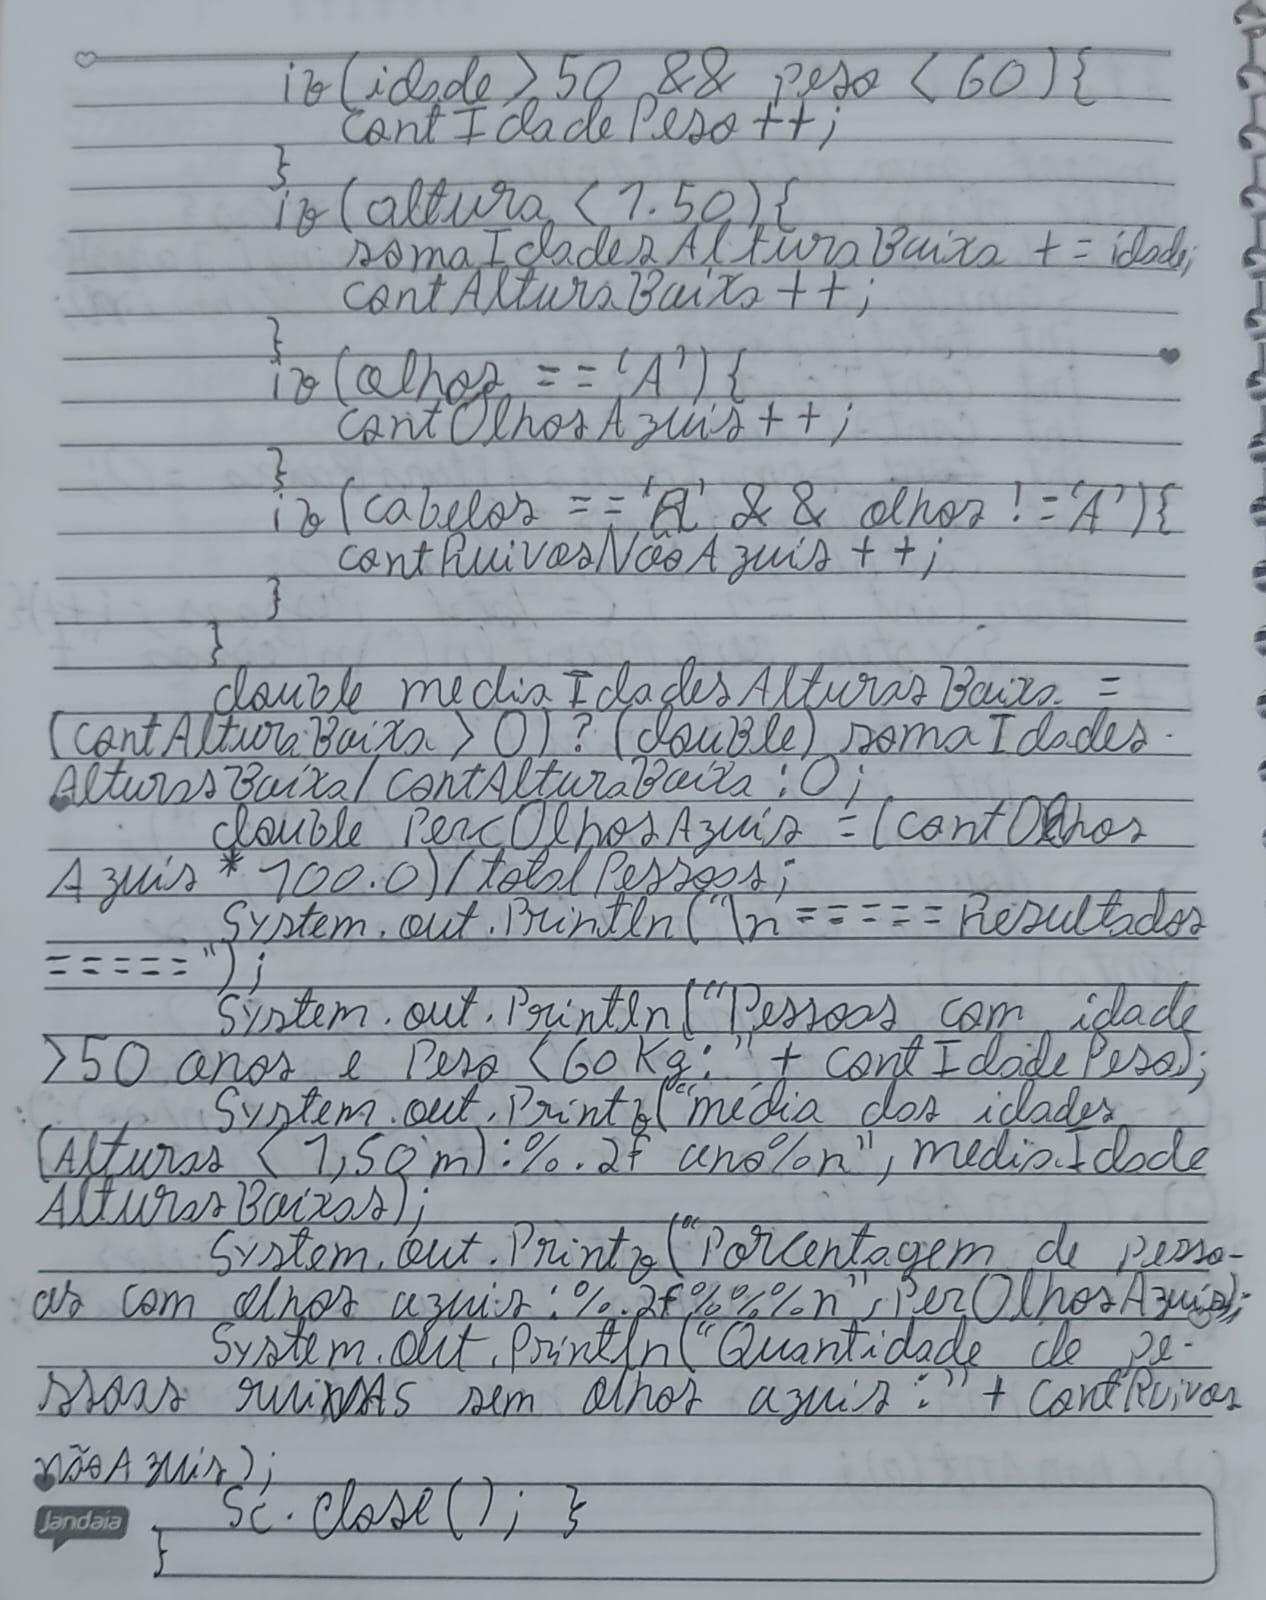 if(idade > 50 && peso < 60){
contIdadePeso++;
}
if(altura < 1.50){
somaIdadesAlturaBaixa += idade;
contAlturaBaixa++;
}
if(olhos == 'A'){
contOlhosAzuis++;
}
if(cabelos == 'R' && olhos != 'A'){
contRuivosNãoAzuis++;
}
}
double mediaIdadesAlturasBaixa =
(contAlturaBaixa > 0) ? (double) somaIdades
AlturasBaixa/contAlturaBaixa : 0;
double PercOlhosAzuis = (contOlhos
Azuis * 100.0)/totalPessoas;
System.out.Println("\n=====Resultados
=====");
System.out.Println("Pessoas com idade
>50 anos e Peso <60Kg:" + contIdadePeso);
System.out.Printf("média dos idades
(Alturas < 1,50 m):%.2f ano%n", mediaIdade
AlturasBaixas);
System.out.Printf("Porcentagem de pesso-
as com olhos azuis:%.2f%%%n", PerOlhosAzuis);
System.out.Println("Quantidade de pe-
ssoas ruivAs sem olhos azuis:" + contRuivos
nãoAzuis);
Sc.close(); }
Jandaia
}